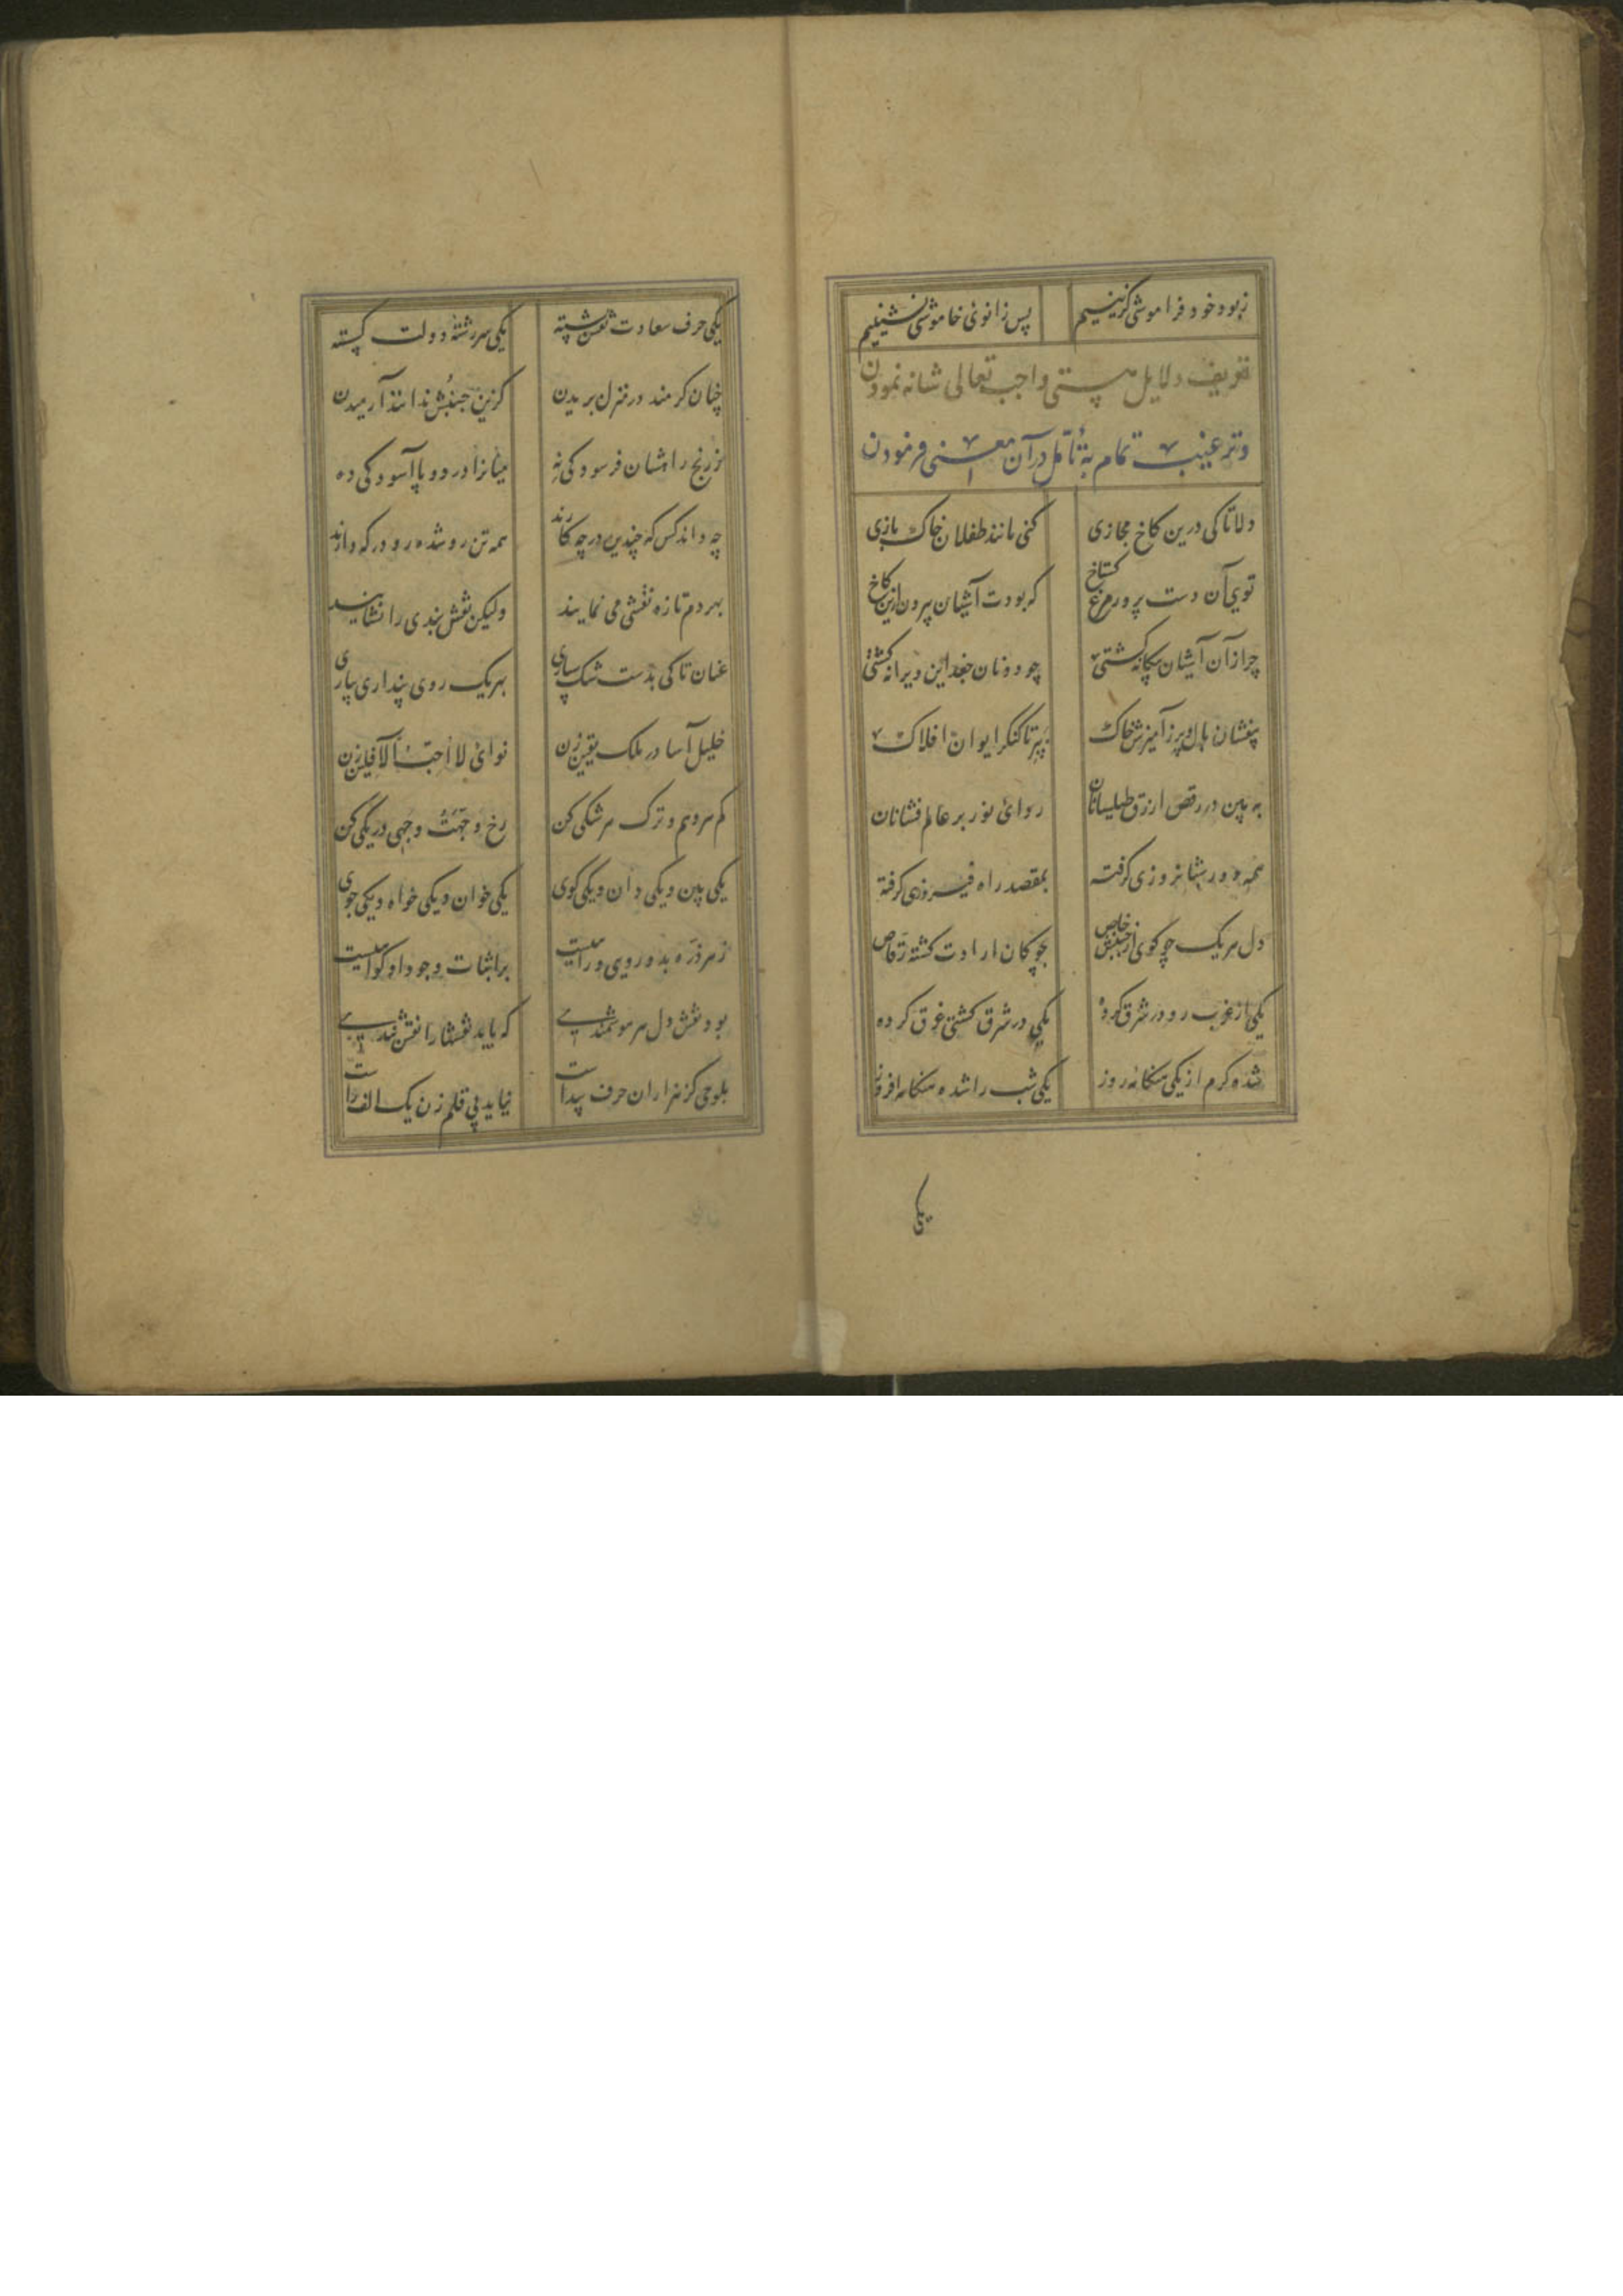 ز بود خود فراموشی گزینیم پس زانوی خاموشی نشینیم
تعریف دلایل هستی واجب تعالی شانه نمودن
و ترغیب تمام به تأمل در آن معنی فرمودن
دلا تا کی درین کاخ مجازی کنی مانند طفلان خاک بازی
تویی آن دست پرور مرغ گستاخ که بودت آشیان بیرون ازین کاخ
چرا زان آشیان بیگانه گشتی چو دونان جغد این ویرانه گشتی
بیفشان بال و پر ز آمیزش خاک بپر تا کنگر ایوان افلاک
به بین در رقص ارزق طیلسانان ردای نور بر عالم فشانان
همه دور شبانروزی گرفته بمقصد راه فیروزی گرفته
دل هر یک چو گوی از جنبش خاص بچوگان ارادت گشته رقاص
یکی از غرب رو در شرق کرده یکی در شرق کشتی غرق کرده
شده گرم از یکی هنگامه روز یکی شب را شده هنگامه افروز
یکی
یکی حرف سعادت نقش بسته یکی سررشته دولت گسسته
چنان گرمند در منزل بریدن کزین جنبش ندانند آرمیدن
ز رنج راهشان فرسودگی نه میانرا درد و پا آسودگی ده
چه داند کس که چندین در چه کارند همه تن رو شده رو در که دارند
بهر دم تازه نقشی می نمایند ولیکن نقش بندی را نشایند
عنان تا کی بدست شک سپاری بهر یک روی هذا ربی آری
خلیل آسا در ملک یقین زن نوای لا احب الآفلین زن
کم هر وهم و ترک هر شکی کن رخ وجهت وجهی در یکی کن
یکی بین و یکی دان و یکی گوی یکی خوان و یکی خواه و یکی جوی
ز هر ذره بدو رویی و راهیست بر اثبات وجود او گواهیست
بود نقش دل هر هوشمندی که باید نقشها را نقش بندی
بلوحی گر هزاران حرف پیداست نیاید بی قلم زن یک الف راست